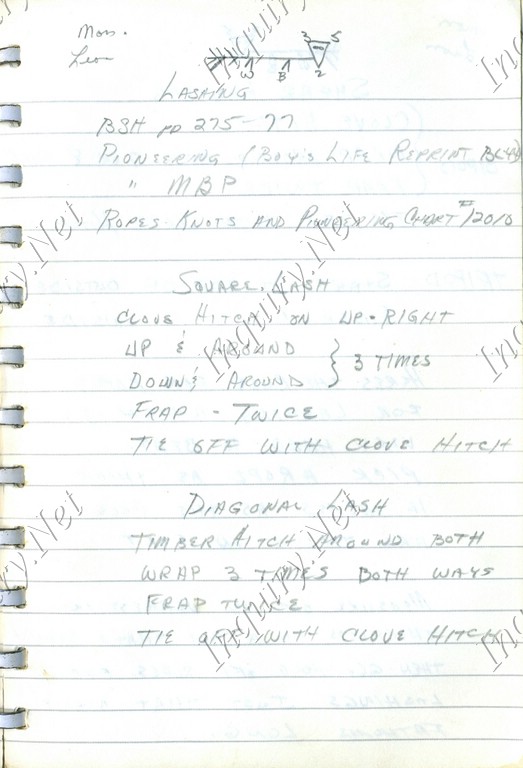 Mon.
Leon
3 5
W B 2
LASHING
BSH pp 275-77
PIONEERING (BOY'S LIFE REPRINT
" MBP
ROPES KNOTS AND PIONEERING CHART # 12010
SQUARE LASH
CLOVE HITCH ON UP-RIGHT
UP & AROUND
DOWN & AROUND } 3 TIMES
FRAP - TWICE
TIE OFF WITH CLOVE HITCH
DIAGONAL LASH
TIMBER HITCH AROUND BOTH
WRAP 3 TIMES BOTH WAYS
FRAP TWICE
TIE OFF WITH CLOVE HITCH
Inquiry.Net